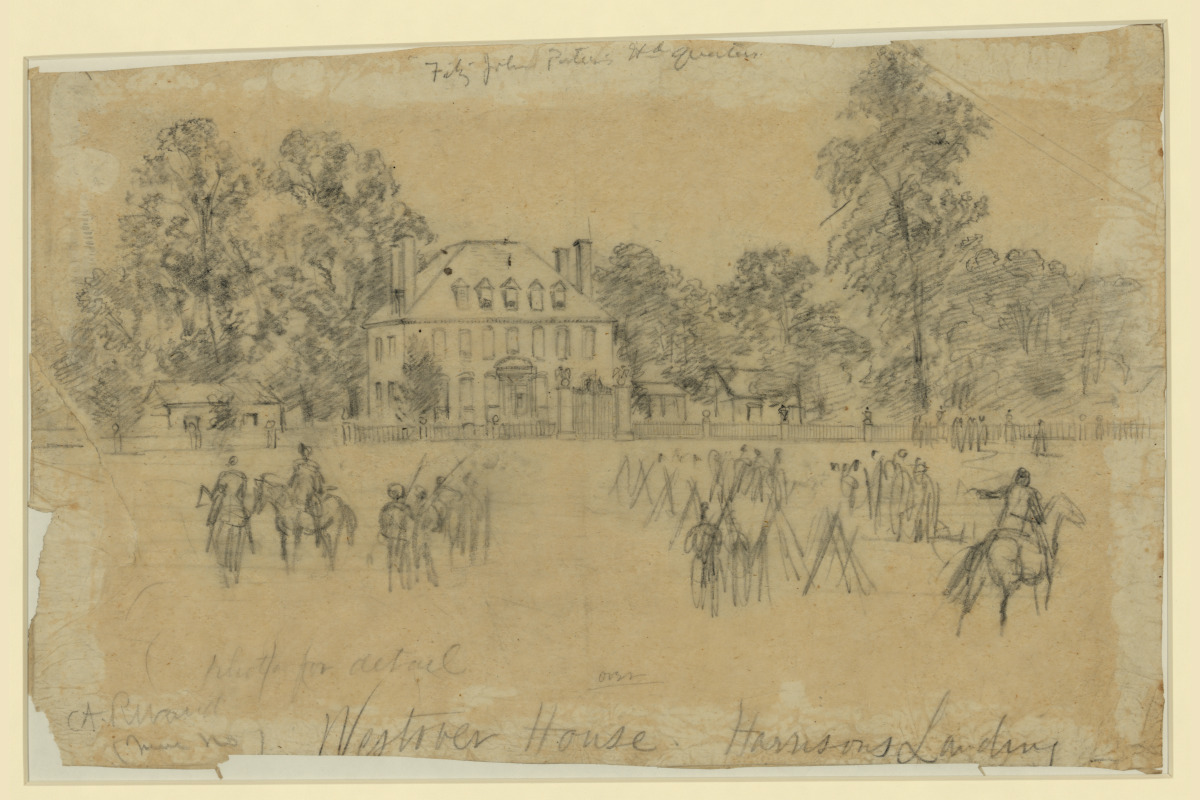 Fitz John Porter's Hd quarters
photo for detail
over
A. R. Waud
Westover House. Harrisons Landing